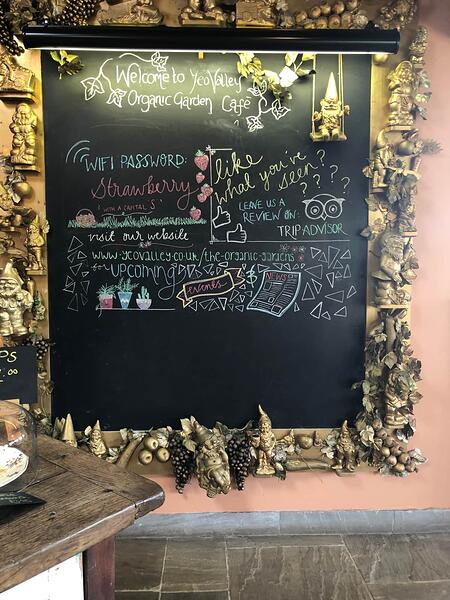 Welcome to Yeo Valley
Organic Garden Café
WIFI PASSWORD:
Strawberry
(WITH A CAPITAL S)
visit our website
like
what you've
seen?
? ? ? ?
LEAVE US A
REVIEW ON:
TRIPADVISOR
www.yeovalley.co.uk/the-organic-gardens
for upcoming
events
& NEWS
PS
.00